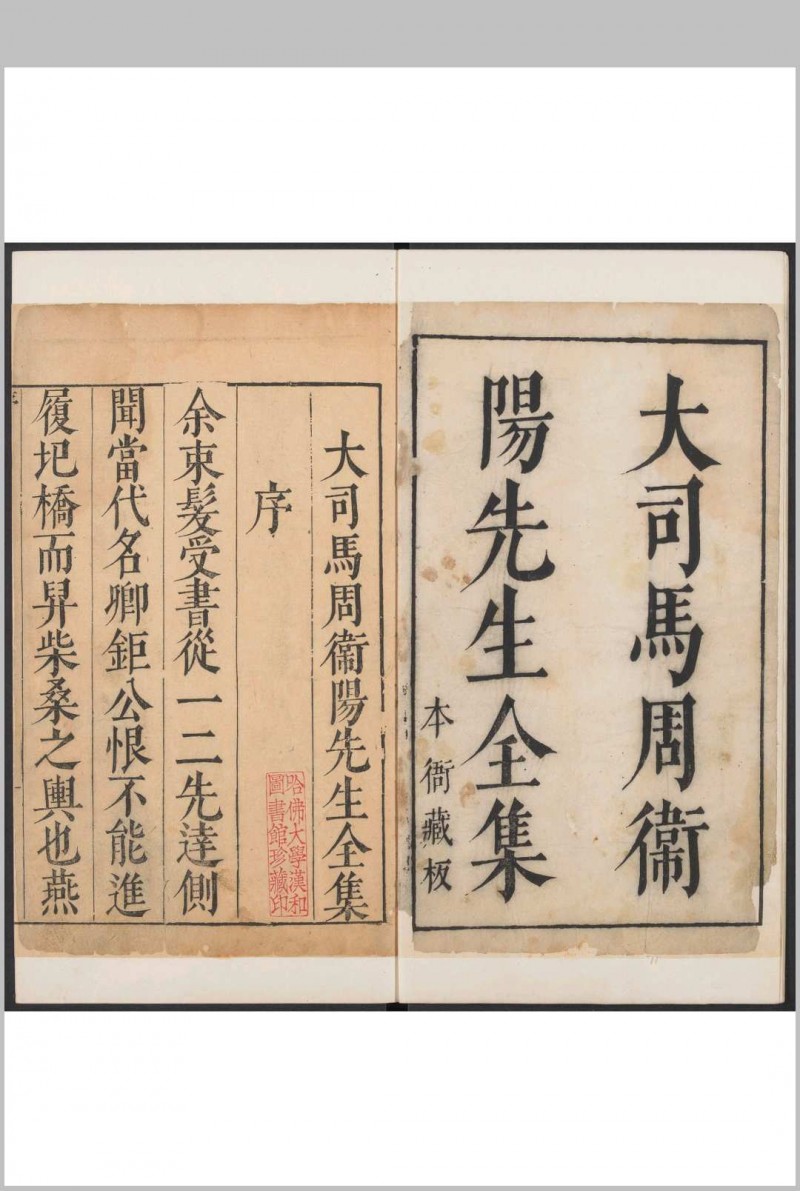 大司馬周衞
陽先生全集
本衙藏板
大司馬周衞陽先生全集
序
哈佛大學漢和
圖書館珍藏印
余束髮受書從一二先達側
聞當代名卿鉅公恨不能進
履圯橋而舁柴桑之輿也燕